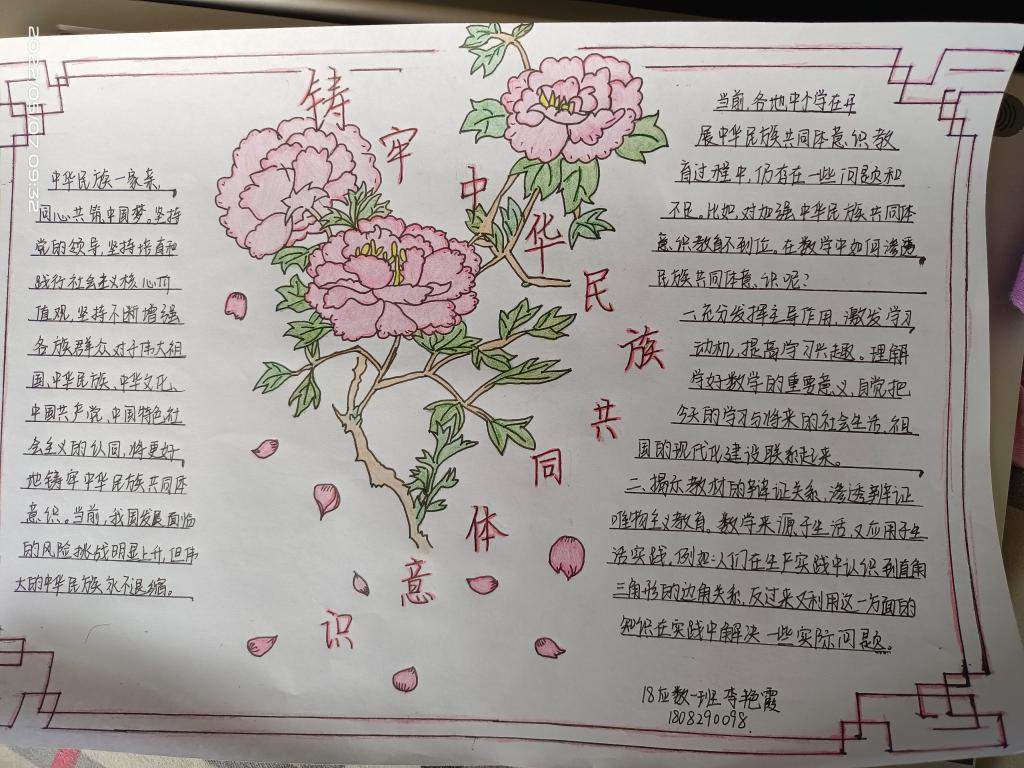 铸牢中华民族共同体意识
中华民族一家亲,
同心共筑中国梦。坚持
党的领导,坚持培育和
践行社会主义核心价
值观,坚持不断增强
各族群众对于伟大祖
国、中华民族、中华文化、
中国共产党、中国特色社
会主义的认同,将更好
地铸牢中华民族共同体
意识。当前,我国发展面临
的风险挑战明显上升,但伟
大的中华民族永不退缩。
当前,各地中小学在开
展中华民族共同体意识教
育过程中,仍存在一些问题和
不足。比如,对加强中华民族共同体
意识教育不到位。在数学中如何渗透
民族共同体意识呢?
一、充分发挥主导作用,激发学习
动机,提高学习兴趣。理解
学好数学的重要意义,自觉把
今天的学习与将来的社会生活,祖
国的现代化建设联系起来。
二、揭示教材的辩证关系,渗透辩证
唯物主义教育。数学来源于生活,又应用于生
活实践,例如:人们在生产实践中认识到直角
三角形的边角关系,反过来又利用这一方面的
知识在实践中解决一些实际问题。
18应数一班 李艳霞
1308290098.